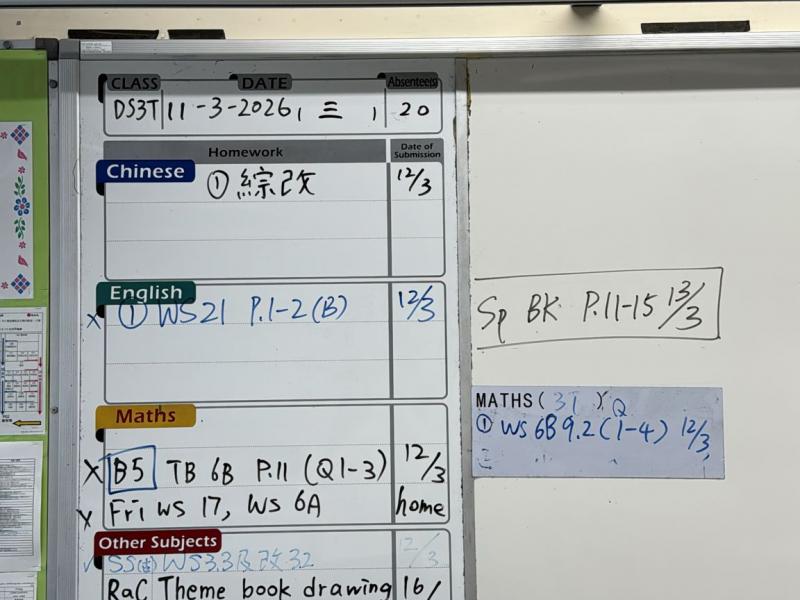 CLASS DATE Absentee(s)
DS3T 11-3-2026, 三, 20
Homework Date of Submission
Chinese
① 綜改 12/3
English
① WS21 P.1-2 (B) 12/3
Maths
B5 TB 6B P.11 (Q1-3) 12/3
Fri WS 17, WS 6A home
Other Subjects
WS3.3及改3.2 12/3
RaC Theme book drawing 16/
Sp BK P.11-15 13/3
MATHS( 3T ) Q
① WS 6B 9.2 (1-4) 12/3